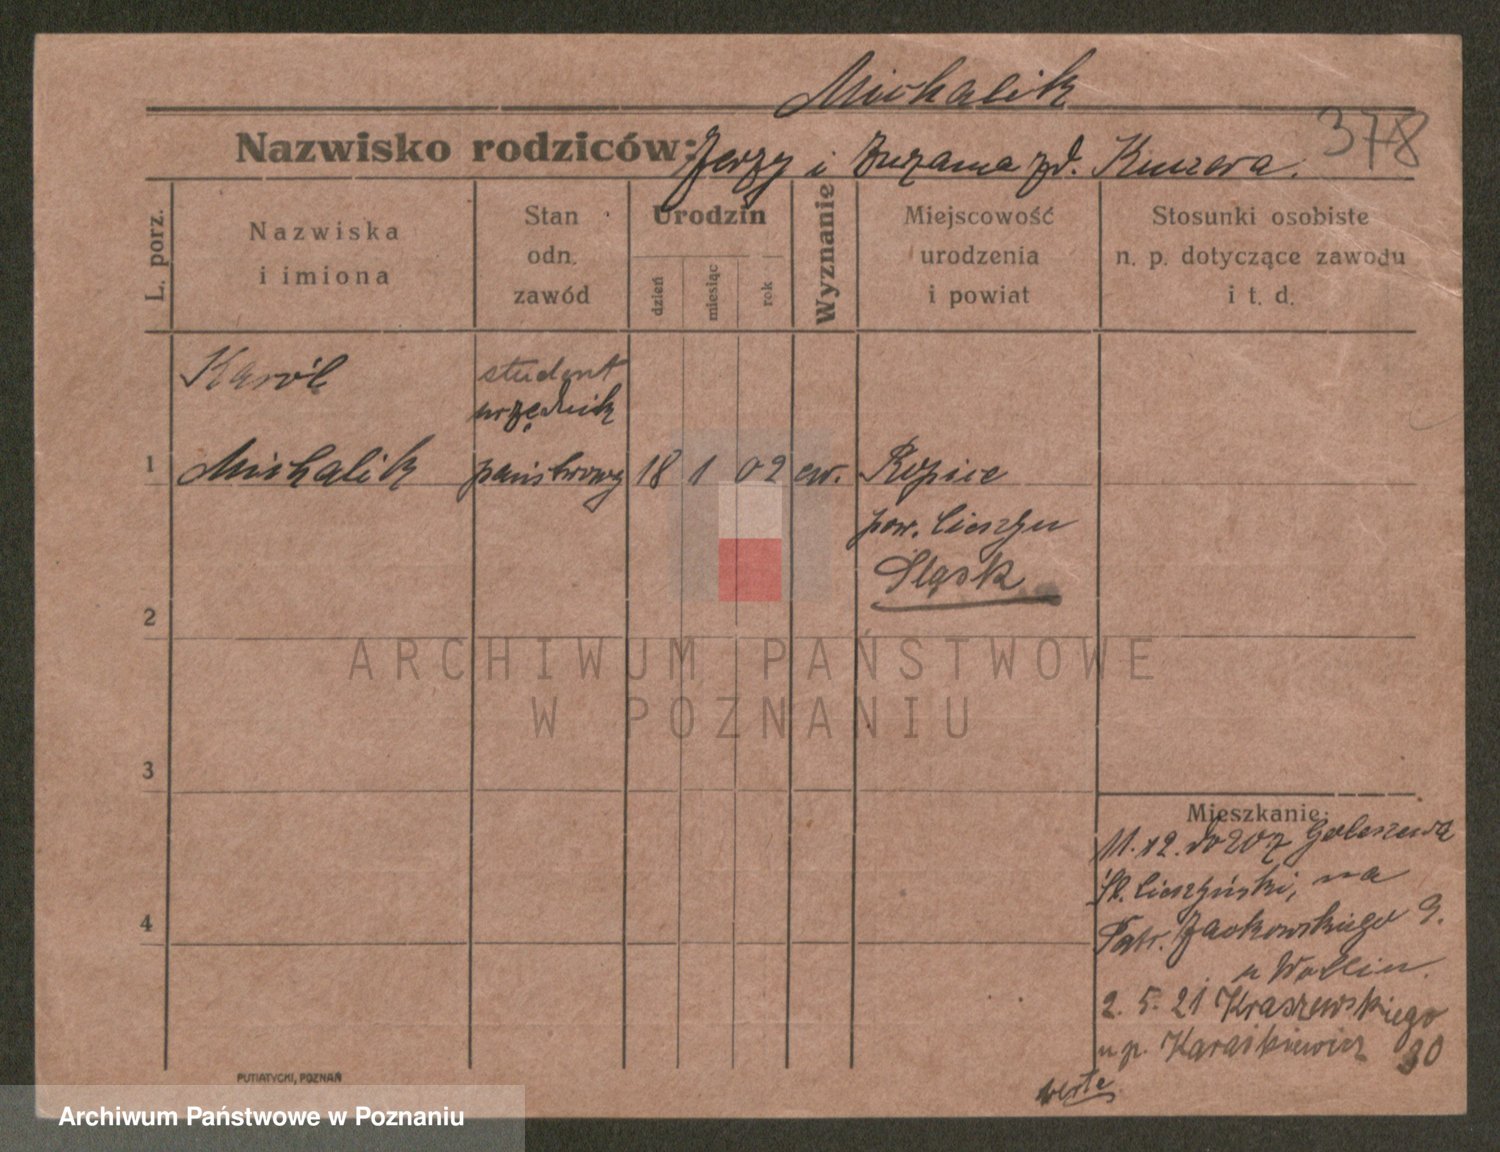 Michalik
378
Nazwisko rodziców: Jerzy i Zuzanna zd.
L. porz.
Nazwiska i imiona
Stan odn. zawód
Urodzin
dzień
miesiąc
rok
Wyznanie
Miejscowość urodzenia i powiat
Stosunki osobiste n. p. dotyczące zawodu i t. d.
Karól
student
urzędnik
1 Michalik państwowy 18 1 02 ew. Ropice
pow. Cieszyn
Śląsk
2
ARCHIWUM PAŃSTWOWE
W POZNANIU
3
Mieszkanie:
Śl. Cieszyński, na
4
Jackowskiego
u
2. 5. 21 Kraszewskiego
u p. Karaśkiewicz 30
verte
PUTIATYCKI, POZNAŃ
Archiwum Państwowe w Poznaniu